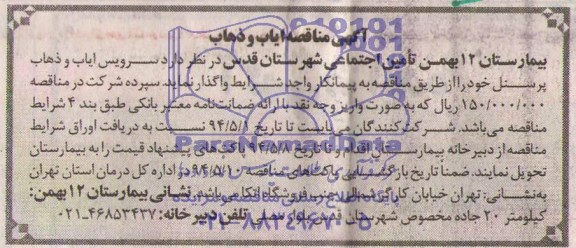 آگهی مناقصه ایاب و ذهاب
بیمارستان ۱۲ بهمن تأمین اجتماعی شهرستان قدس در نظر دارد سرویس ایاب و ذهاب
پرسنل خود را از طریق مناقصه به پیمانکار واجد شرایط واگذار نماید. سپرده شرکت در مناقصه
۱۵۰/۰۰۰/۰۰۰ ریال که به صورت واریز وجه نقد یا ارائه ضمانت نامه معتبر بانکی طبق بند ۴ شرایط
مناقصه می‌باشد. شرکت کنندگان می‌بایست تا تاریخ ۹۴/۵/۱ نسبت به دریافت اوراق شرایط
مناقصه از دبیرخانه بیمارستان اقدام و تا تاریخ ۹۴/۵/۸ پاکت‌های پیشنهاد قیمت را به بیمارستان
تحویل نمایند. ضمناً تاریخ بازگشایی پاکت‌های مناقصه ۹۴/۵/۱۰ در اداره کل درمان استان تهران
به نشانی: تهران خیابان کارگر شمالی جنب فروشگاه اتکا می‌باشد. نشانی بیمارستان ۱۲ بهمن:
کیلومتر ۲۰ جاده مخصوص شهرستان قدس بلوار مصلی تلفن دبیرخانه: ۴۶۸۵۳۴۳۷-۰۲۱